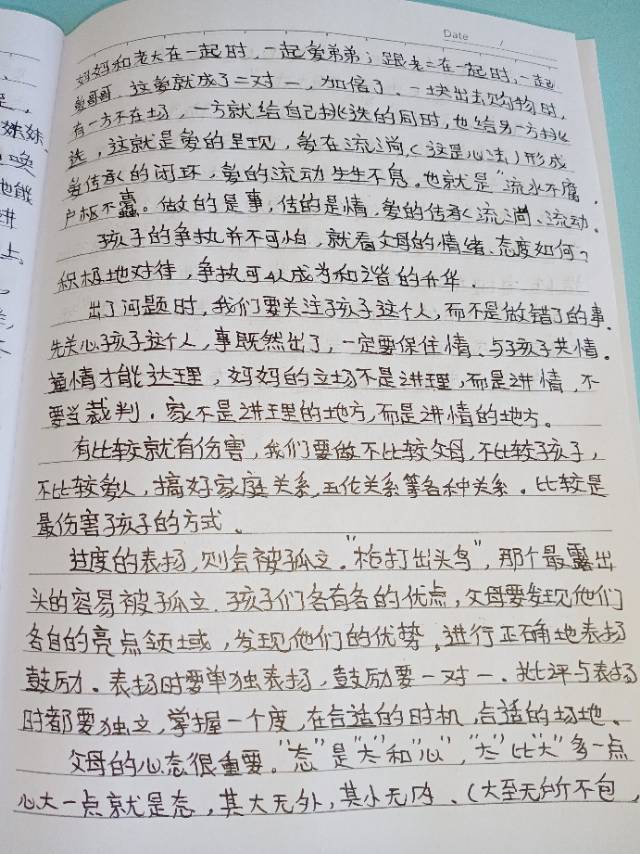 Date /
妹妹
唤
他能
进
上.
妈妈和老大在一起时,一起爱弟弟;跟老二在一起时,一起
爱哥哥,这爱就成了二对一,加倍了,一块出去购物时,
有一方不在场,一方就给自己挑选的同时,也给另一方挑
选,这就是爱的呈现,爱在流淌,(这是心法)形成
爱传承的闭环,爱的流动生生不息。也就是"流水不腐,
户枢不蠹。做的是事,传的是情,爱的传承流淌、流动。
孩子的争执并不可怕,就看父母的情绪、态度如何?
积极地对待,争执可以成为和谐的升华.
出了问题时,我们要关注孩子这个人,而不是做错了的事.
先关心孩子这个人,事既然出了,一定要保住情、与孩子共情。
通情才能达理,妈妈的立场不是讲理,而是讲情,不
要当裁判.家不是讲理的地方,而是讲情的地方。
有比较就有伤害,我们要做不比较父母,不比较孩子,
不比较爱人,搞好家庭关系,五伦关系等各种关系.比较是
最伤害孩子的方式.
过度的表扬,则会被孤立."枪打出头鸟",那个最露出
头的容易被孤立.孩子们各有各的优点,父母要发现他们
各自的亮点领域,发现他们的优势.进行正确地表扬
鼓励.表扬时要单独表扬,鼓励要一对一.批评与表扬
时都要独立,掌握一个度,在合适的时机,合适的场地.
父母的心态很重要."态"是"太"和"心","太"比"大"多一点
心大一点就是态,其大无外,其小无内.(大至无所不包,